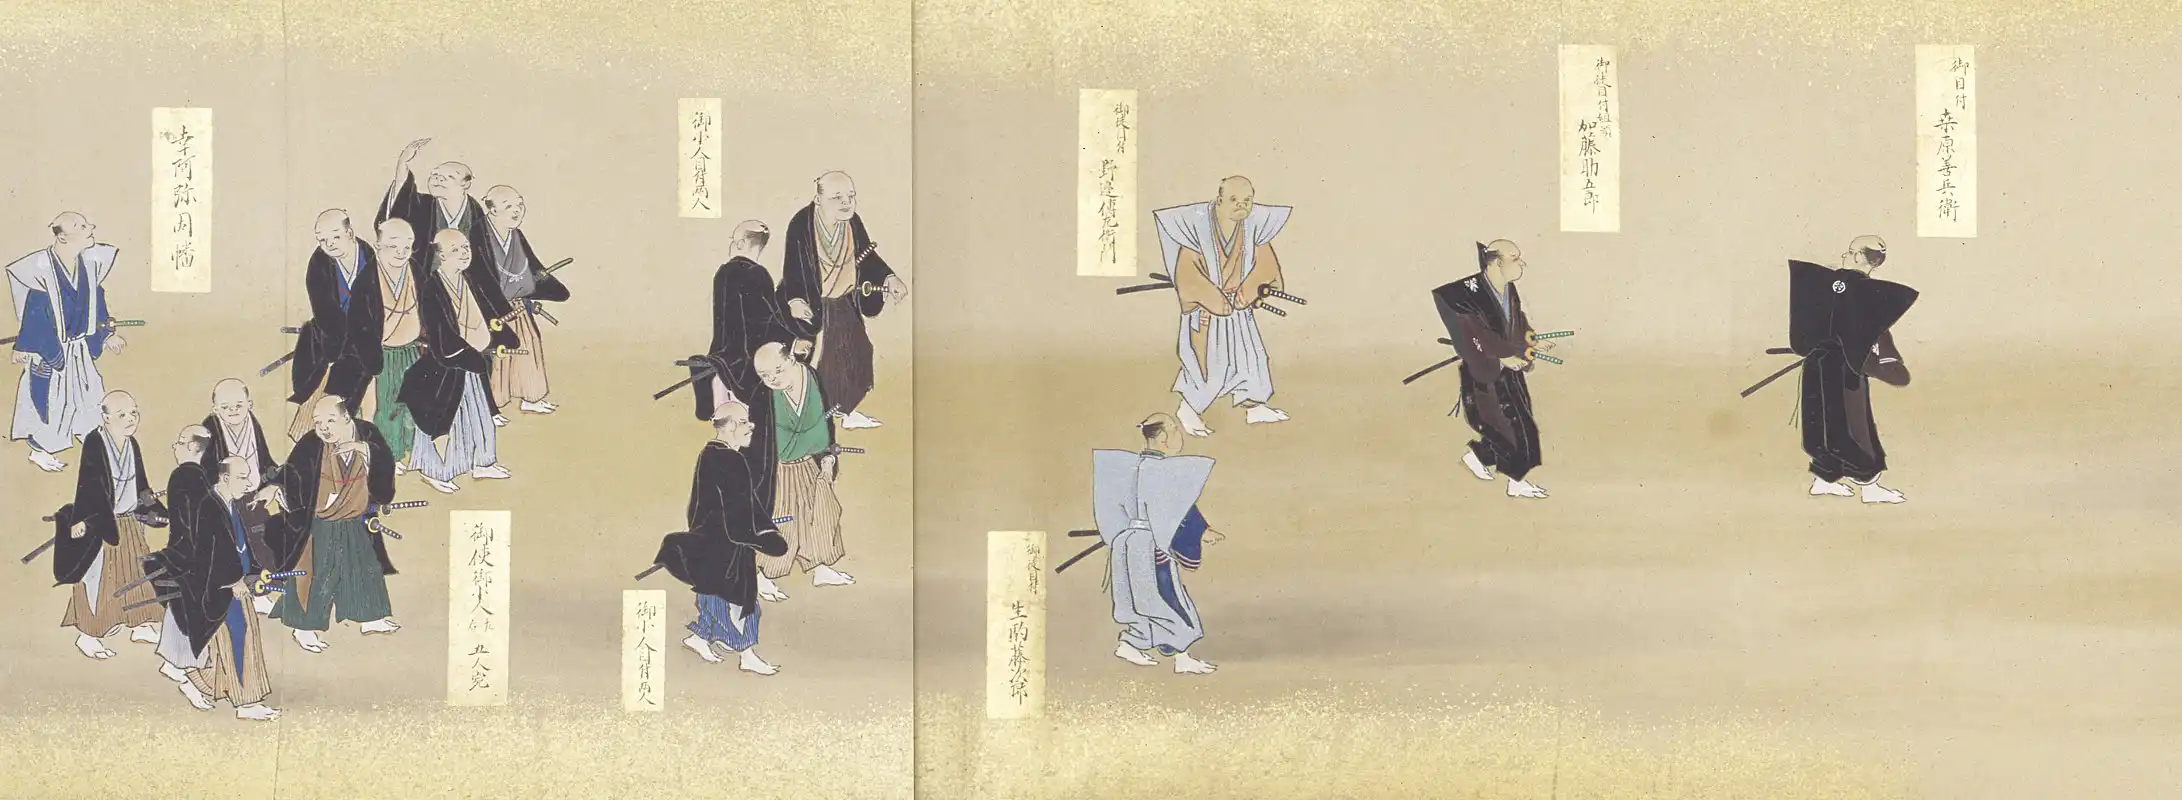 御目付
桒原善兵衛
御徒目付組頭
加藤助五郎
御徒目付
野邉傳左衛門
御徒目付
生駒藤次郎
御小人目付両人
御小人目付両人
御使御小人
九
右
五人宛
幸阿弥因幡